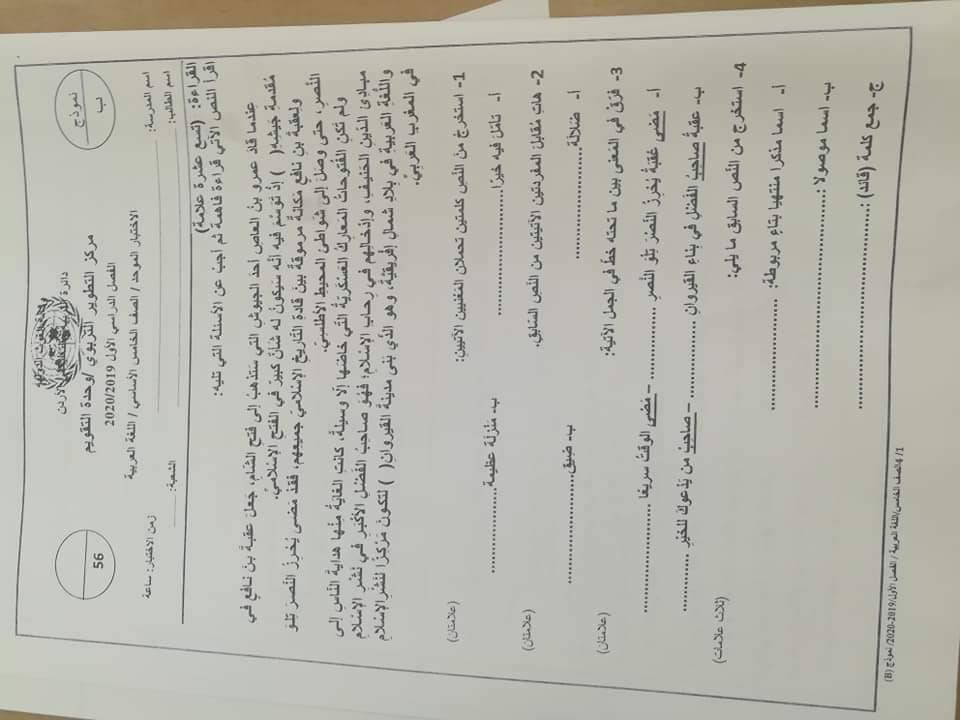 نموذج
ب
56
دائرة
الأردن
مركز التطوير التربوي /وحدة التقويم
الفصل الدراسي الأول 2020/2019
الاختبار الموحد / الصف الخامس الأساسي / اللغة العربية
اسم المدرسة: زمن الاختبار: ساعة
اسم الطالب: الشعبة:
القراءة: (تسع عشرة علامة)
اقرأ النص الآتي قراءة فاهمة ثم أجب عن الأسئلة التي تليه:
عندما قاد عمرو بن العاص أحد الجيوش التي ستذهب إلى فتح الشام، جعل عقبة بن نافع في
مقدمة جيشه( ) إذ توسم فيه أنه سيكون له شأن كبير في الفتح الإسلامي.
ولعقبة بن نافع مكانة مرموقة بين قادة التاريخ الإسلامي جميعهم، فقد مضى يحرز النصر تلو
النصر، حتى وصل إلى شواطئ المحيط الأطلسي.
ولم تكن الفتوحات المعارك العسكرية التي خاضها إلا وسيلة، كانت الغاية منها هداية الناس إلى
مبادئ الدين الحنيف، وإدخالهم في رحاب الإسلام؛ فهو صاحب الفضل الأكبر في نشر الإسلام
واللغة العربية في بلاد شمال إفريقية، وهو الذي بنى مدينة القيروان( ) لتكون مركزا لنشر الإسلام
في المغرب العربي.
1- استخرج من النص كلمتين تحملان المعنيين الآتيين: (علامتان)
أ- تأمل فيه خيرا............ ب- منزلة عظيمة............
2- هات مقابل المفردتين الآتيتين من النص السابق. (علامتان)
أ- ضلالة............ ب- ضيق............
3- فرق في المعنى بين ما تحته خط في الجمل الآتية: (علامتان)
أ- مضى عقبة يحرز النصر تلو النصر ............ – مضى الوقت سريعا ............
ب- عقبة صاحب الفضل في بناء القيروان ............ – صاحب من يدعوك للخير ............
4- استخرج من النص السابق ما يلي: (ثلاث علامات)
أ- اسما مذكرا منتهيا بتاء مربوطة: ............
ب- اسما موصولا :............
ج- جمع كلمة (قائد) :............
4/1 الصف الخامس/اللغة العربية / الفصل الأول/2019-2020/ نموذج (B)